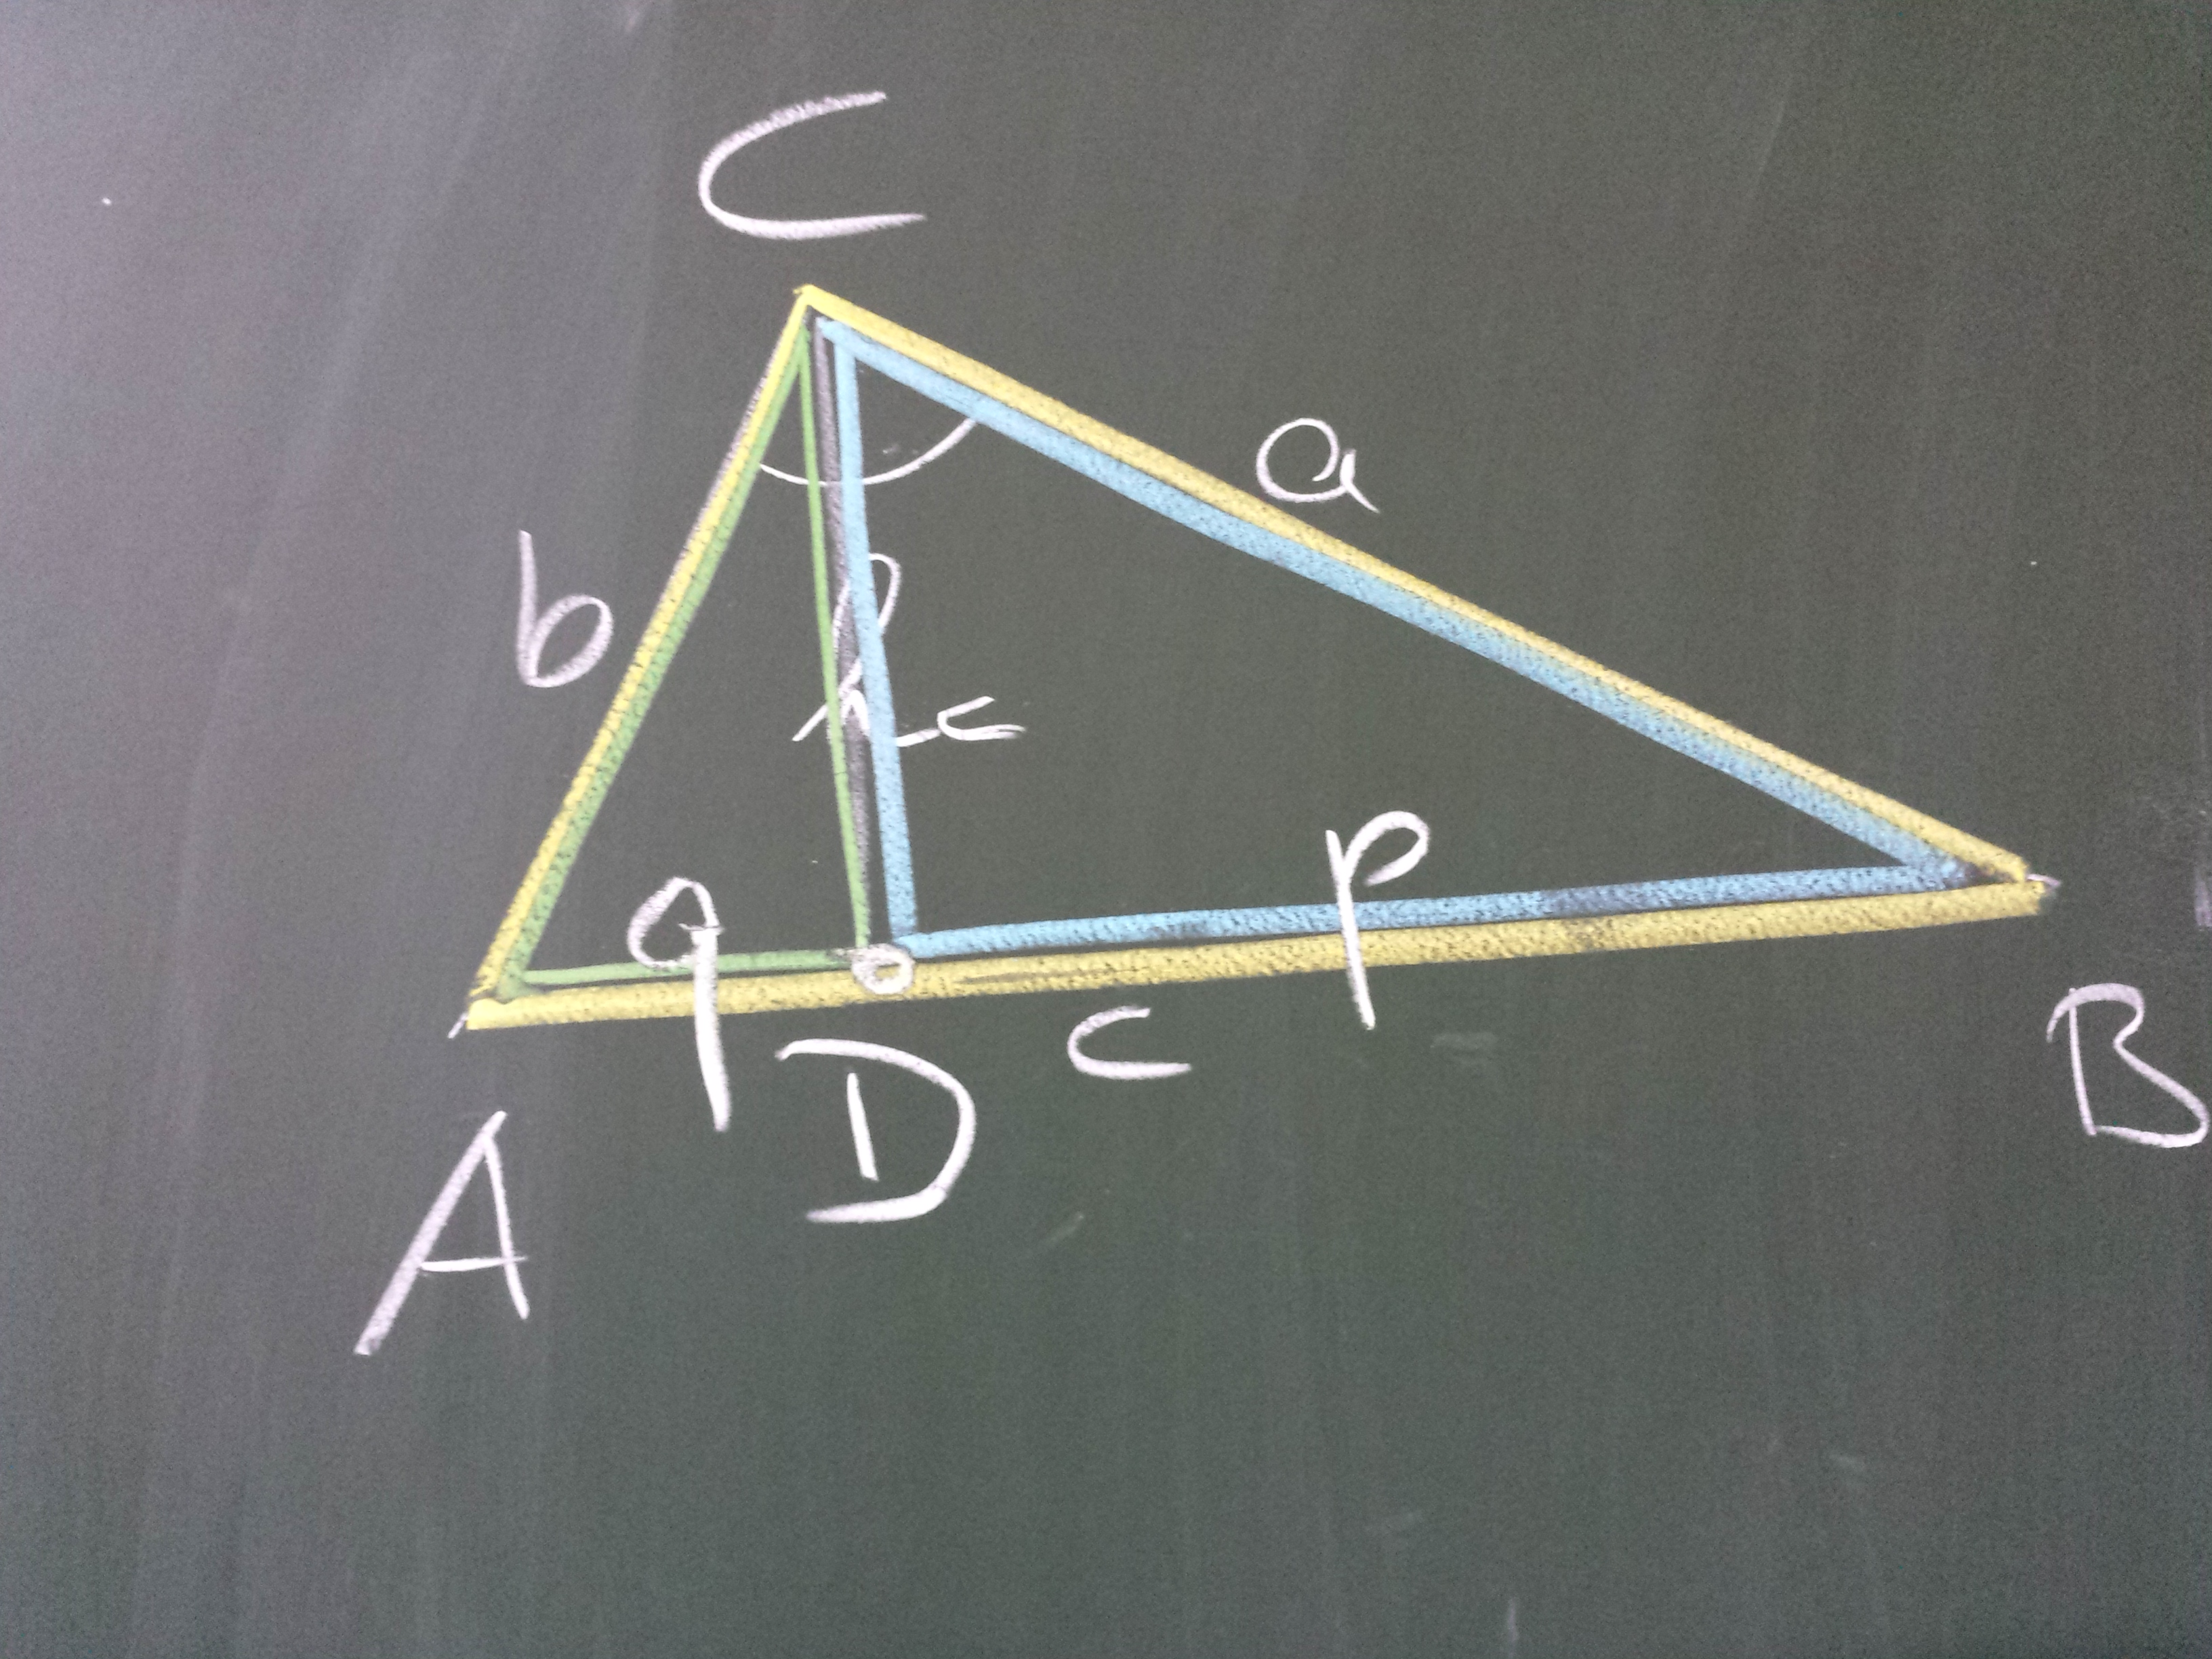 C
a
b
h_c
p
q
c
B
D
A